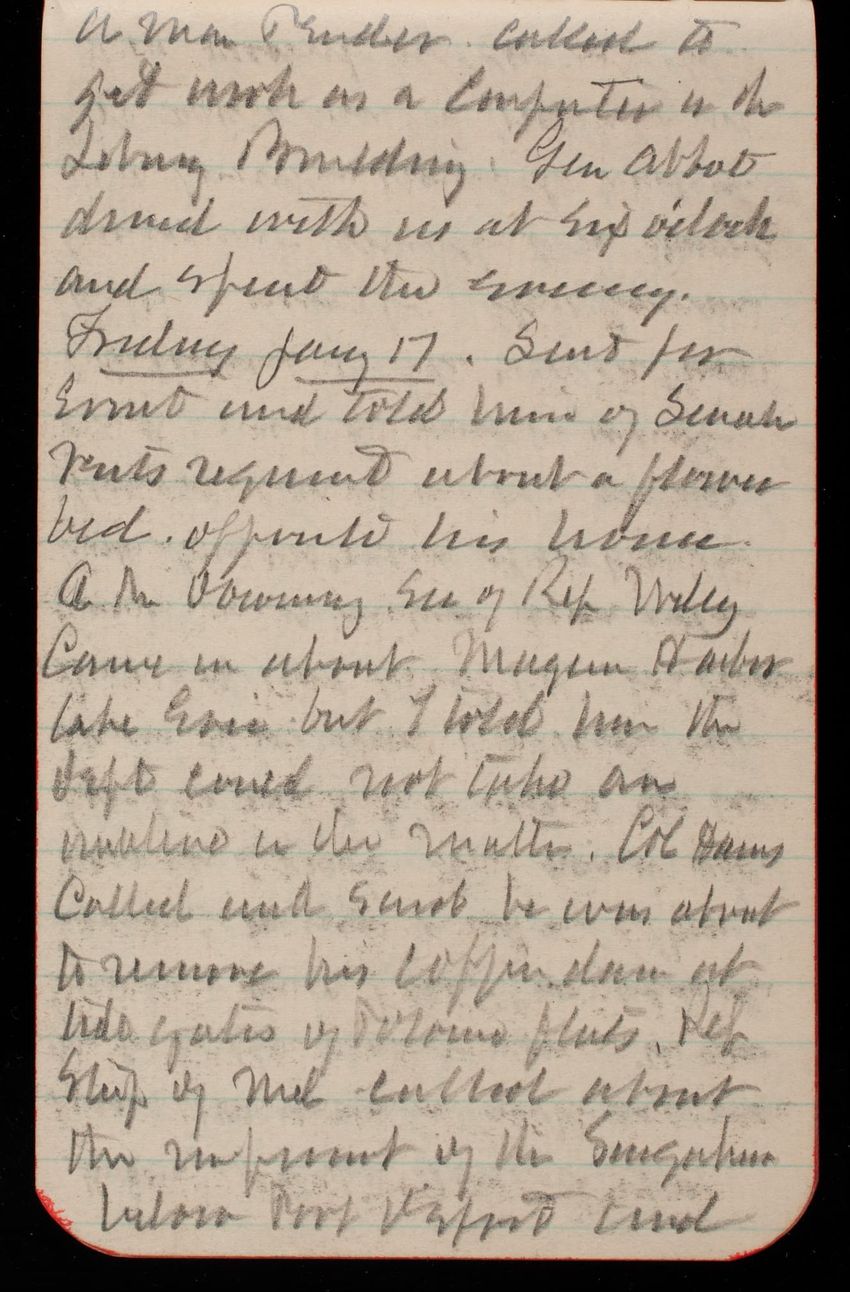 A man Pender called to
get work as a Computer in the
Library Building. Gen Abbot
dined with us at Six o'clock
and spent the evening.
Friday Jany 17. Sent for
Ernst and told him of Senator
request about a flower
bed. opposite his house
A Mr Downing Sec of Rep Wiley
Came in about Harbor
lake Erie but I told him the
dept could not take an
in the matter. Col Hains
Called and said he was about
to remove his Coffer dam at
tide gates of Potomac flats. Rep
Stip of Md called about
the improvmt of the Susquehanna
below Port Deposit and